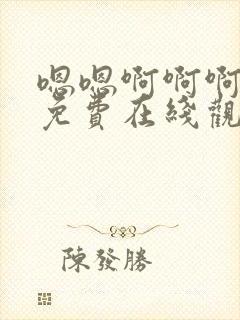 嗯嗯啊啊啊
免費在綫觀
陳發勝